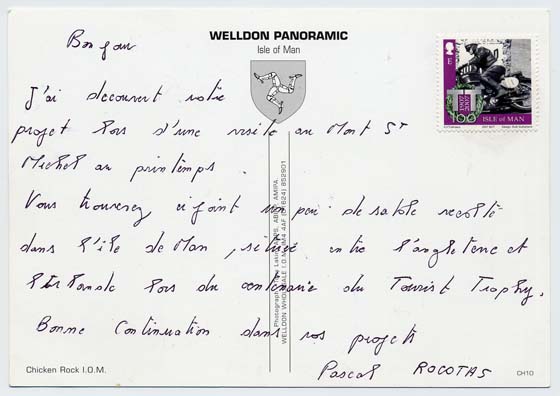 WELLDON PANORAMIC
Isle of Man
Bonjour
J'ai decouvert votre
projet lors d'une visite au Mont St
Michel au printemps.
Vous trouverez ci joint un peu de sable recolté
dans l'île de Man, située entre l'angleterre et
l'irlande lors du centenaire du Tourist Trophy.
Bonne Continuation dans vos projets
Pascal ROCOTAS
Chicken Rock I.O.M.
CH10
E
100
ISLE of MAN